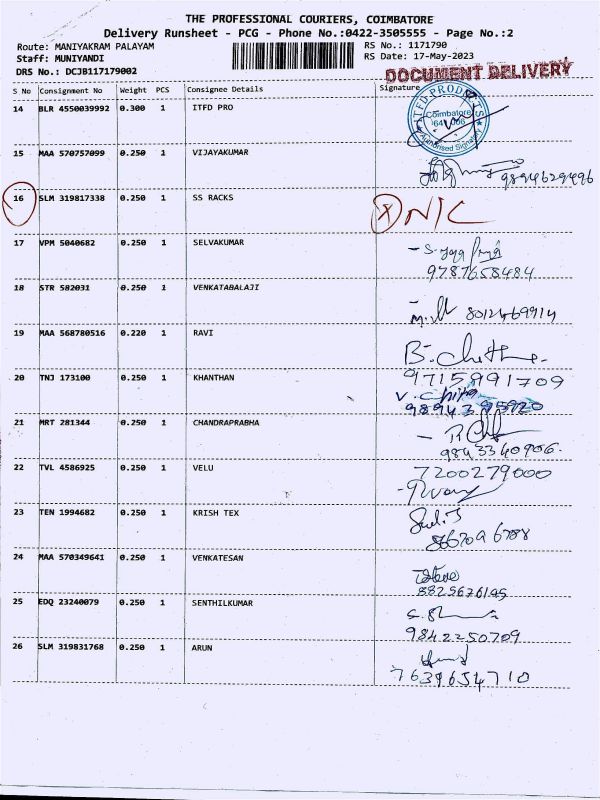 THE PROFESSIONAL COURIERS, COIMBATORE
Delivery Runsheet - PCG - Phone No.:0422-3505555 - Page No.:2
Route: MANIYAKRAM PALAYAM
RS No.: 1171790
Staff: MUNIYANDI
RS Date: 17-May-2023
DRS No.: DCJB117179002
DOCUMENT DELIVERY
S No Consignment No Weight PCS Consignee Details Signature
14 BLR 4550039992 0.300 1 ITFD PRO
ITFD PRODUCTS
Coimbatore
Authorised Signatory
15 MAA 570757099 0.250 1 VIJAYAKUMAR
9894629496
16 SLM 319817338 0.250 1 SS RACKS N/C
17 VPM 5040682 0.250 1 SELVAKUMAR
9787658484
18 STR 582031 0.250 1 VENKATABALAJI
8012469914
19 MAA 568780516 0.220 1 RAVI
9715991709
20 TNJ 173100 0.250 1 KHANTHAN
21 MRT 281344 0.250 1 CHANDRAPRABHA
9843340906.
22 TVL 4586925 0.250 1 VELU 7200279000
23 TEN 1994682 0.250 1 KRISH TEX
24 MAA 570349641 0.250 1 VENKATESAN
25 EDQ 23240079 0.250 1 SENTHILKUMAR
9842250709
26 SLM 319831768 0.250 1 ARUN
7639654710